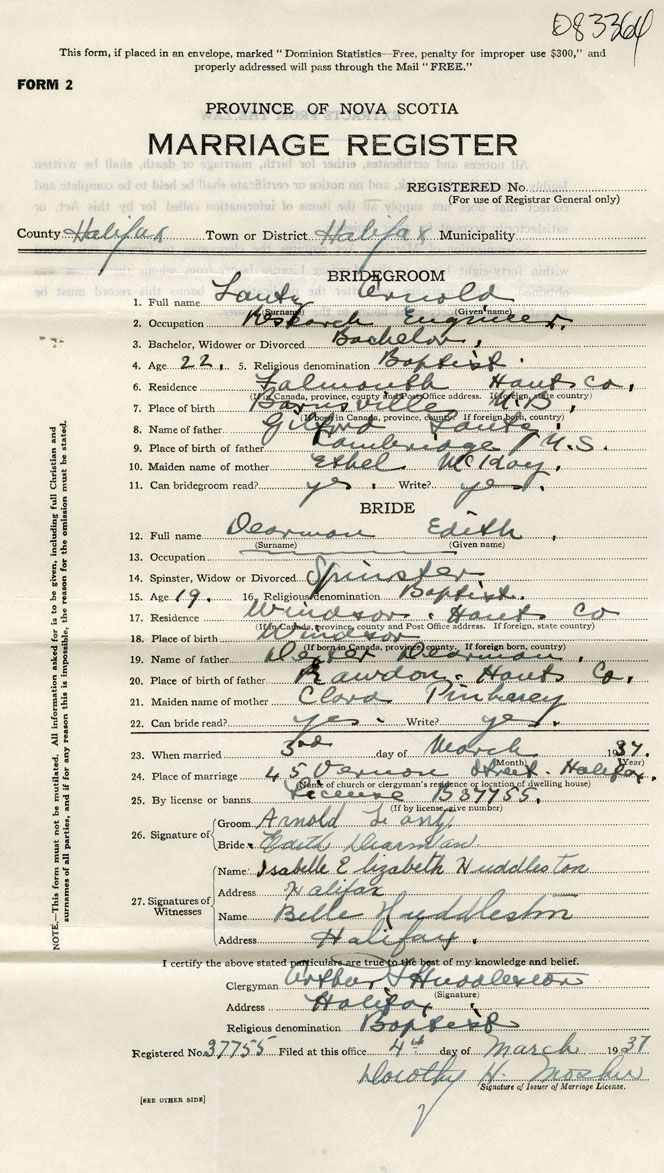 083364
This form, if placed in an envelope, marked "Dominion Statistics—Free, penalty for improper use $300," and
properly addressed will pass through the Mail "FREE."
FORM 2
PROVINCE OF NOVA SCOTIA
MARRIAGE REGISTER
REGISTERED No.
(For use of Registrar General only)
County Halifax Town or District Halifax Municipality
BRIDEGROOM
1. Full name Lantz Arnold
(Surname) (Given name)
2. Occupation Research Engineer.
3. Bachelor, Widower or Divorced Bachelor.
4. Age 22. 5. Religious denomination Baptist.
6. Residence Falmouth Hants Co.
(If in Canada, province, county and Post Office address. If foreign, state country)
7. Place of birth Barnsville N.B.
(If born in Canada, province, county. If foreign born, country)
8. Name of father Gilford Lantz
9. Place of father Cambridge N.S.
10. Maiden name of mother Ethel McKay.
11. Can bridegroom read? yes. Write? yes.
BRIDE
12. Full name Dearman Edith.
(Surname) (Given name)
13. Occupation
14. Spinster, Widow or Divorced Spinster
15. Age 19. 16. Religious denomination Baptist.
17. Residence Windsor. Hants Co
(If in Canada, province, county and Post Office address. If foreign, state country)
18. Place of birth Windsor
(If born in Canada, province, county. If foreign born, country)
19. Name of father Dexter Dearman.
20. Place of birth of father Rawdon. Hants Co.
21. Maiden name of mother Clara Pinkney
22. Can bride read? yes. Write? yes.
23. When married 3rd day of March 1937.
(Month) (Year)
24. Place of marriage 45 Vernon Street. Halifax.
(Name of church or clergyman's residence or location of dwelling house)
25. By license or banns License B37755.
(If by license, give number)
26. Signature of Groom Arnold Lantz
Bride Edith Dearman
27. Signatures of Witnesses Name Isabelle Elizabeth Huddleston
Address Halifax
Name Belle Huddleston
Address Halifax.
I certify the above stated particulars are true to the best of my knowledge and belief.
Clergyman Arthur Huddleston
(Signature)
Address Halifax.
Religious denomination Baptist
Registered No. 37755 Filed at this office 4th day of March 1937
Dorothy H. Mosher
Signature of Issuer of Marriage License.
[SEE OTHER SIDE]
NOTE.—This form must not be mutilated. All information asked for is to be given, including full Christian and
surnames of all parties, and if for any reason this is impossible, the reason for the omission must be stated.